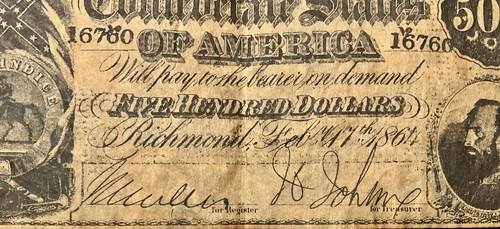 Confederate States
50
16760 16760
OF AMERICA
VINDICE
Will pay to the bearer on demand
FIVE HUNDRED DOLLARS
Richmond, Feb. 17th, 1864
for Register for Treasurer